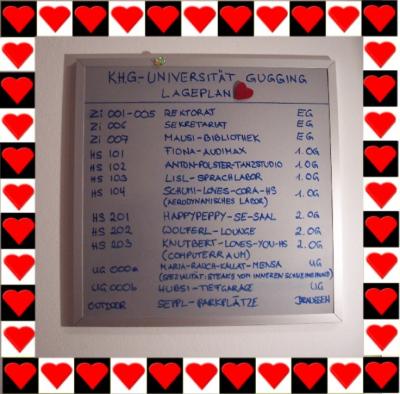 KHG-UNIVERSITÄT GUGGING
LAGEPLAN
Zi 001-005 REKTORAT EG
Zi 006 SEKRETARIAT EG
Zi 007 MAUSI-BIBLIOTHEK EG
HS 101 FIONA-AUDIMAX 1.OG
HS 102 ANTON-POLSTER-TANZSTUDIO 1.OG
HS 103 LISL-SPRACHLABOR 1.OG
HS 104 SCHUMI-LOVES-CORA-HS 1.OG
(AERODYNAMISCHES LABOR)
HS 201 HAPPYPEPPY-SE-SAAL 2.OG
HS 202 WOLFERL-LOUNGE 2.OG
HS 203 KNUTBERT-LOVES-YOU-HS 2.OG
(COMPUTERRAUM)
UG 000a MARIA-RAUCH-KALLAT-MENSA UG
(SPEZIALITÄT: STEAKS VOM INNEREN SCHWEINEHUND)
UG 000b HUBSI-TIEFGARAGE UG
OUTDOOR SEPPL-PARKPLÄTZE DRAUSSEN